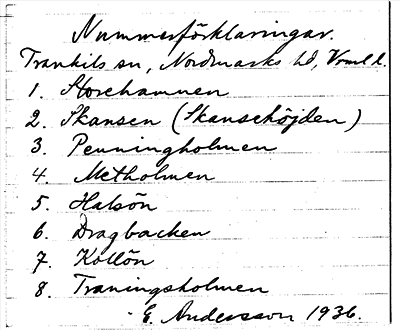 Nummerförklaringar.
Trankils sn, Nordmarks hd, Vrml d.
1. Storehamnen
2. Skansen (Skansehöjden)
3. Penningholmen
4. Metholmen
5. Halsön
6. Dragbacken
7. Kollön
8. Traningsholmen
E. Andersson 1936.